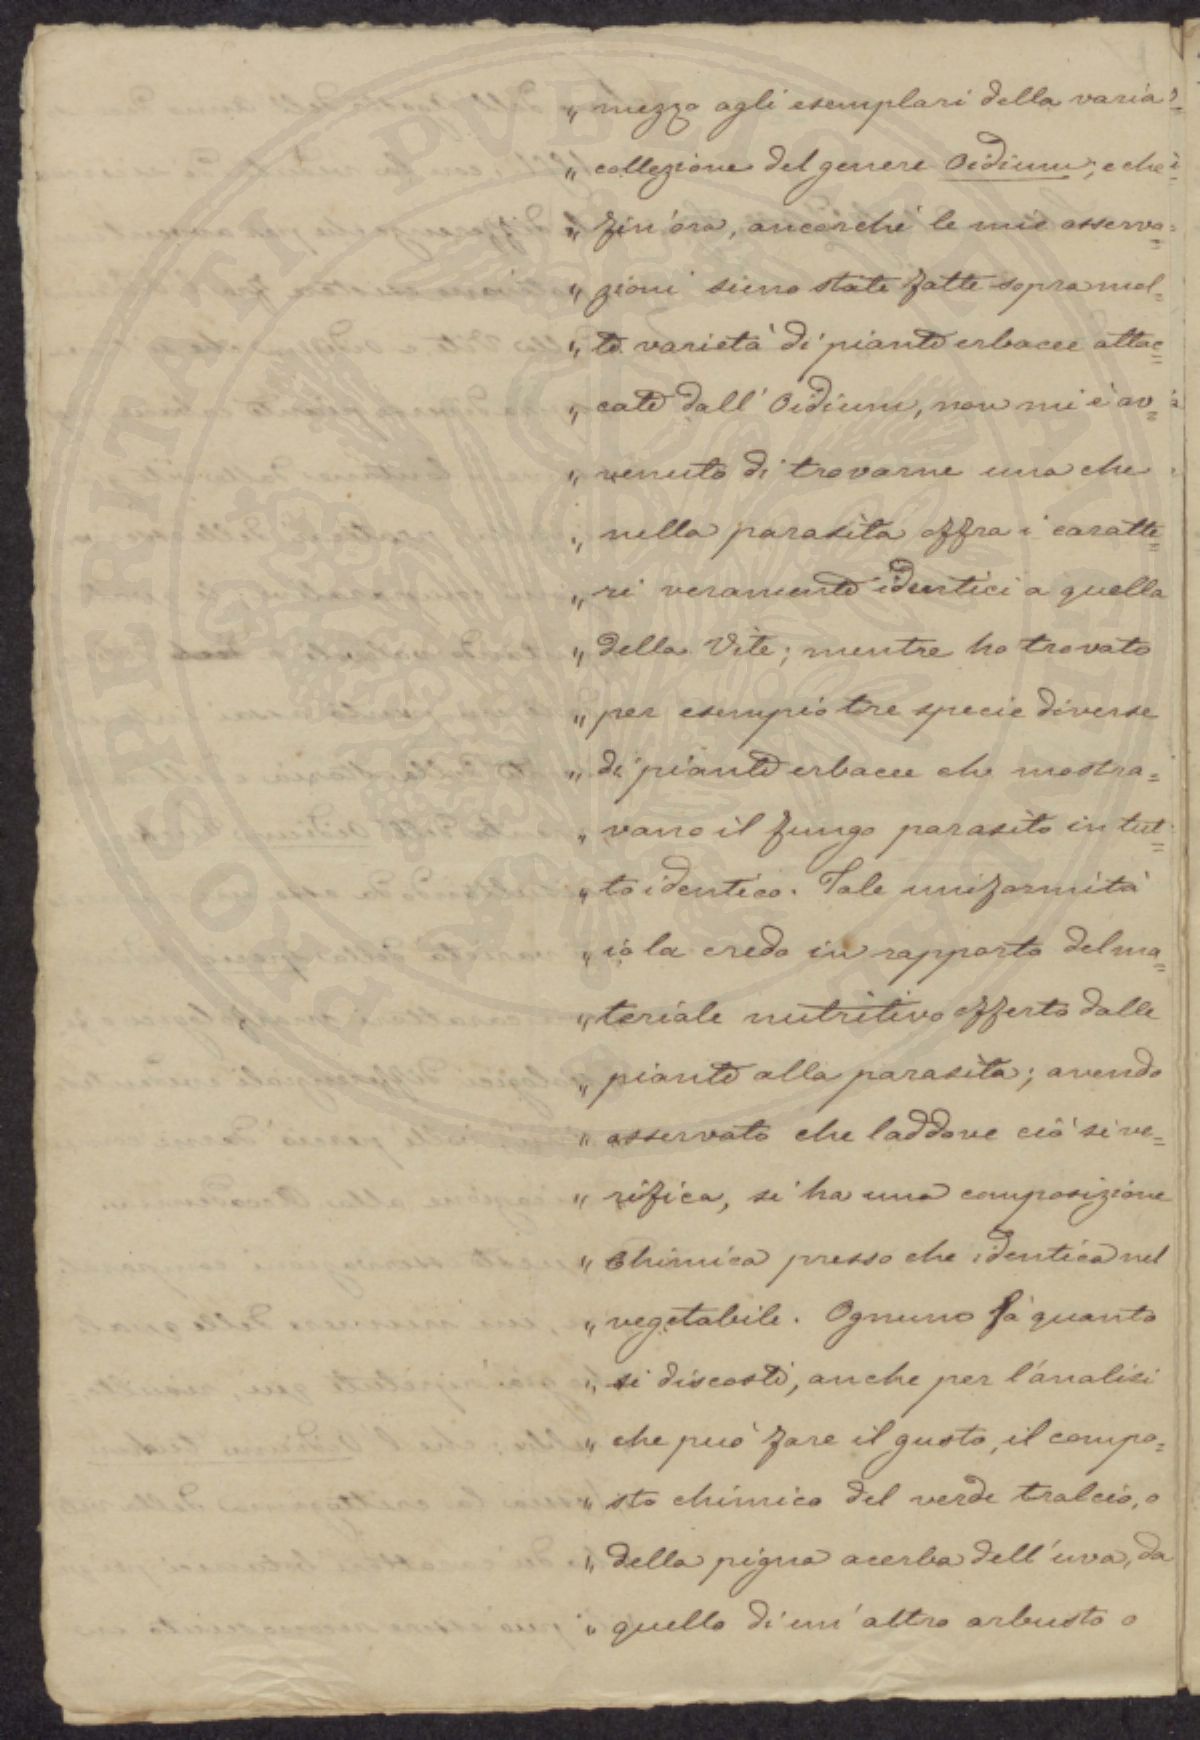 „ mezzo agli esemplari della varia
„ collezione del genere Oidium; e che
„ fin'ora, ancorché le mie osserva=
„ zioni sieno state fatte sopra mol=
„ te varietà di piante erbacee attac=
„ cate dall'Oidium, non mi è av=
„ venuto di trovarne una che
„ nella parasita offra i caratte=
„ ri veramente identici a quella
„ della Vite; mentre ho trovato
„ per esempio tre specie diverse
„ di piante erbacee che mostra=
„ vano il fungo parasito in tut=
„ to identico. Tale uniformità
„ io la credo in rapporto del ma=
„ teriale nutritivo offerto dalle
„ piante alla parasita; avendo
„ osservato che laddove ciò si ve=
„ rifica, si ha una composizione
„ chimica presso che identica nel
„ vegetabile. Ognuno sà quanto
„ si discosti, anche per l'analisi
„ che può fare il gusto, il compo=
„ sto chimico del verde tralcio, o
„ della pigna acerba dell'uva, da
„ quello di un'altro arbusto o